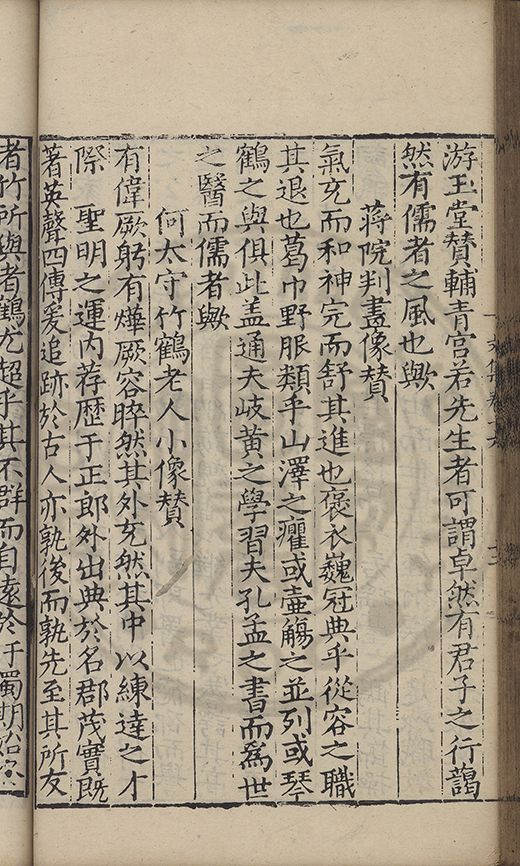 游玉堂賛輔青宮若先生者可謂卓然有君子之行藹
然有儒者之風也歟
蔣院判畫像賛
氣充而和神完而舒其進也褒衣巍冠典乎從容之職
其退也葛巾野服類乎山澤之癯或壺觴之並列或琴
鶴之與俱此盖通夫岐黄之學習夫孔孟之書而為世
之醫而儒者歟
何太守竹鶴老人小像賛
有偉厥躬有燁厥容睟然其外充然其中以練達之才
際 聖明之運内荐歷于正郎外出典於名郡茂實既
著英聲四傳爰追跡於古人亦孰後而孰先至其所友
者竹所與者鶴尤超乎其不群而自遠於